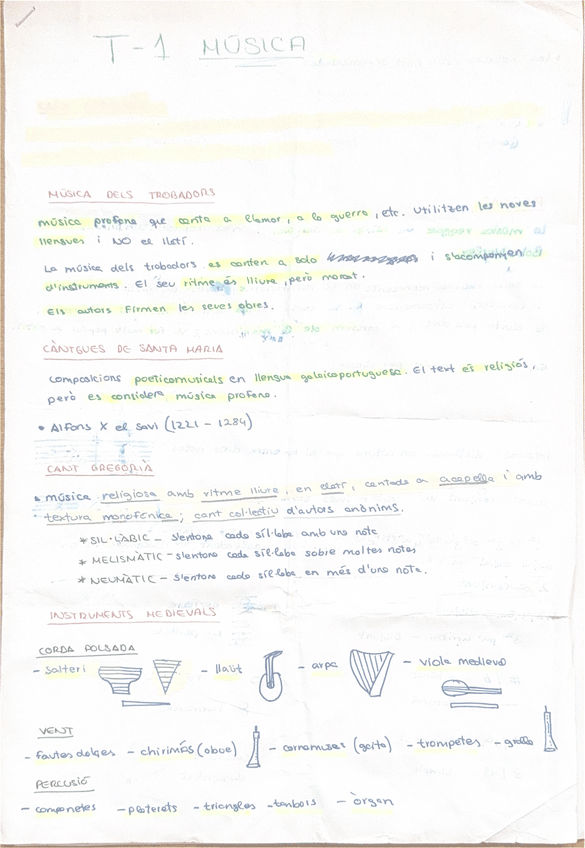 T-1 MÚSICA
MÚSICA DELS TROBADORS
música profana que canta a l'amor, a la guerra, etc. Utilitzen les noves
llengües i NO el llatí.
La música dels trobadors es canten a solo i s'acompanyen
d'instruments. El seu ritme és lliure, però marcat.
Els autors firmen les seves obres.
CÀNTIGUES DE SANTA MARIA
Composicions poeticomusicals en llengua galaicoportuguesa. El text és religiós,
però es considera música profana.
• Alfons X el savi (1221 - 1284)
CANT GREGORIÀ
• música religiosa amb ritme lliure, en llatí, cantada a acapella i amb
textura monofònica; cant col·lectiu d'autors anònims.
* SIL·LÀBIC - s'entona cada síl·laba amb una nota
* MELISMÀTIC - s'entona cada síl·laba sobre moltes notes
* NEUMÀTIC - s'entona cada síl·laba en més d'una nota.
INSTRUMENTS MEDIEVALS
CORDA POLSADA
- Salteri - llaüt - arpa - viola medieval
VENT
- flautes dolçes - chirimías (oboe) - cornamuses (gaita) - trompetes - gralla
PERCUSIÓ
- campanetes - platerets - triangles - tanbors - òrgan